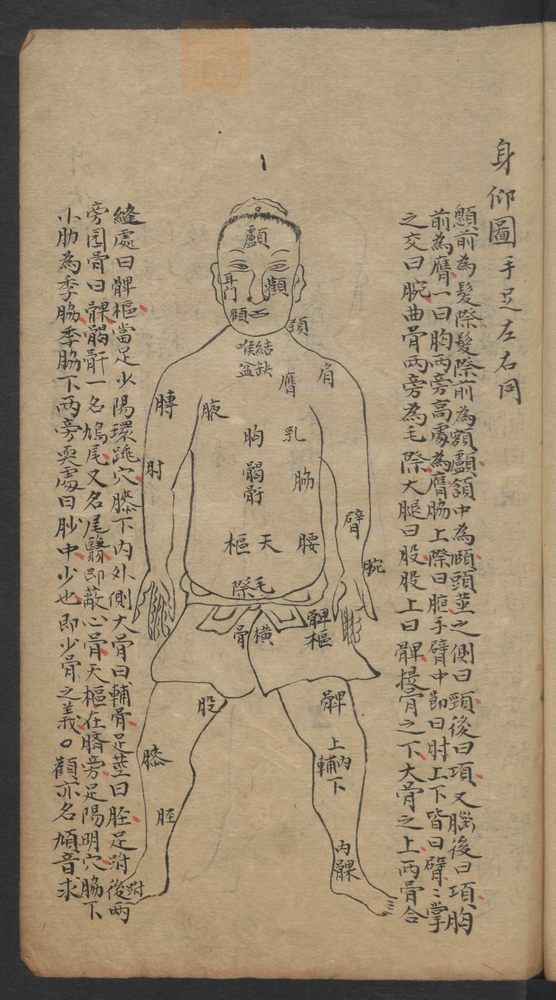 身仰圖 手足左右同
顖前為髮際髮際前為額顱額中為頭莖之側曰頸後曰項又腦後曰項胸
前為膺一曰胸兩旁高處為膺脇上際曰腋手臂中節曰肘上下皆曰臂〻掌
之交曰腕曲骨兩旁為毛際大腿曰股股上曰髀揵骨之下大骨之上兩骨合
縫處曰髀樞當足少陽環跳穴膝下內外側大骨曰輔骨足莖曰脛足跗後兩
旁圓骨曰髁𩩲骬一名鳩尾又名尾翳即蔽心骨天樞在臍旁足陽明穴脇下
小肋為季脇季脇下兩旁耎處曰䏚中少也即少骨之義○顴亦名頄音求
跗
顱
耳門
顴
頏
頸
結喉
缺盆
膺
肩
膊
腋
胸
乳
肘
𩩲骬
脇
臂
天樞
腰
腕
毛際
橫骨
髀樞
股
髀
膝
上
輔內
下
脛
內髁